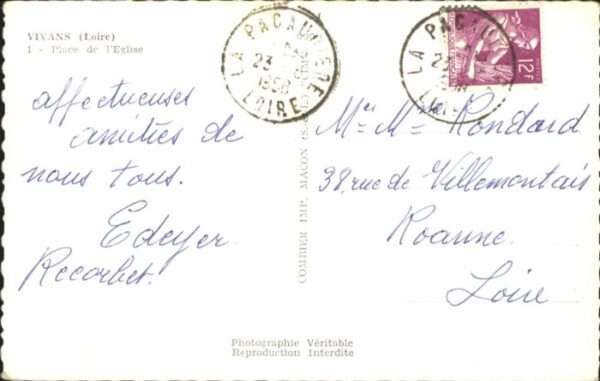 VIVANS (Loire)
1 - Place de l'Eglise
LA PACAUDIERE
23
1958
LOIRE
12F
affectueuses
amitiés de
nous tous.
Edeyer
Recorbet.
COMBIER IMP. MACON
Mr Me Rondard
38, rue de Villemontais
Roanne.
Loire
Photographie Véritable
Reproduction Interdite